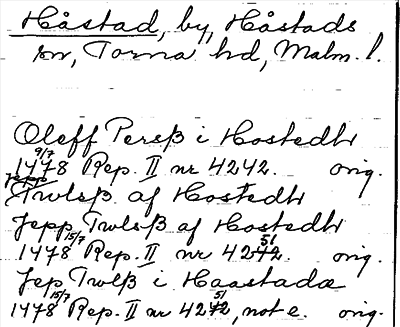 Håstad, by, Håstads
sn, Torna hd, Malm. l.
Oleff Persß i Hostedh
9/7
1478 Rep. II nr 4242. orig.
Jepp
Twlsß af Hostedh
Jepp Twlsß af Hostedh
15/7 51
1478 Rep. II nr 4242. orig.
Jep Twlß i Haastadæ
15/7 51
1478 Rep. II nr 4242, not e. orig.